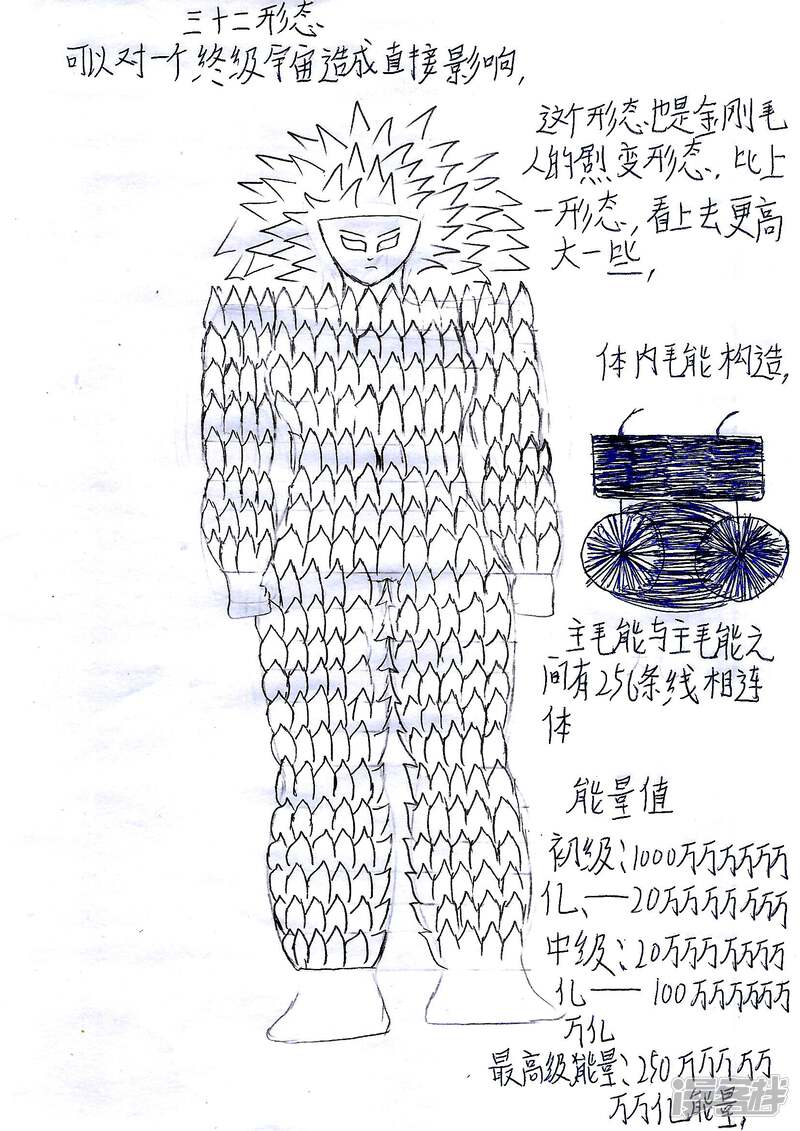 三十二形态
可以对一个终级宇宙造成直接影响,
这个形态也是金刚毛
人的烈变形态,比上
一形态,看上去更高
大一些,
体内毛能构造,
主毛能与主毛能之
间有256条线相连
体
能量值
初级:1000万万万万万
亿、—20万万万万万万
中级:20万万万万万万
亿— 100万万万万万
万亿
最高级能量:250万万万万
万万亿能量,
漫客栈